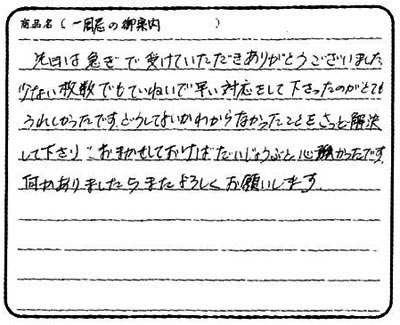 商品名(一周忌の御案内)
先日は急ぎで受けていただきありがとうございました
少ない枚数でもていねいで早い対応をして下さったのがとても
うれしかったです。どうしてよいかわからなかったことをさっと解決
して下さり、おまかせしておけばだいじょうぶと心強かったです。
何かありましたらまたよろしくお願いします